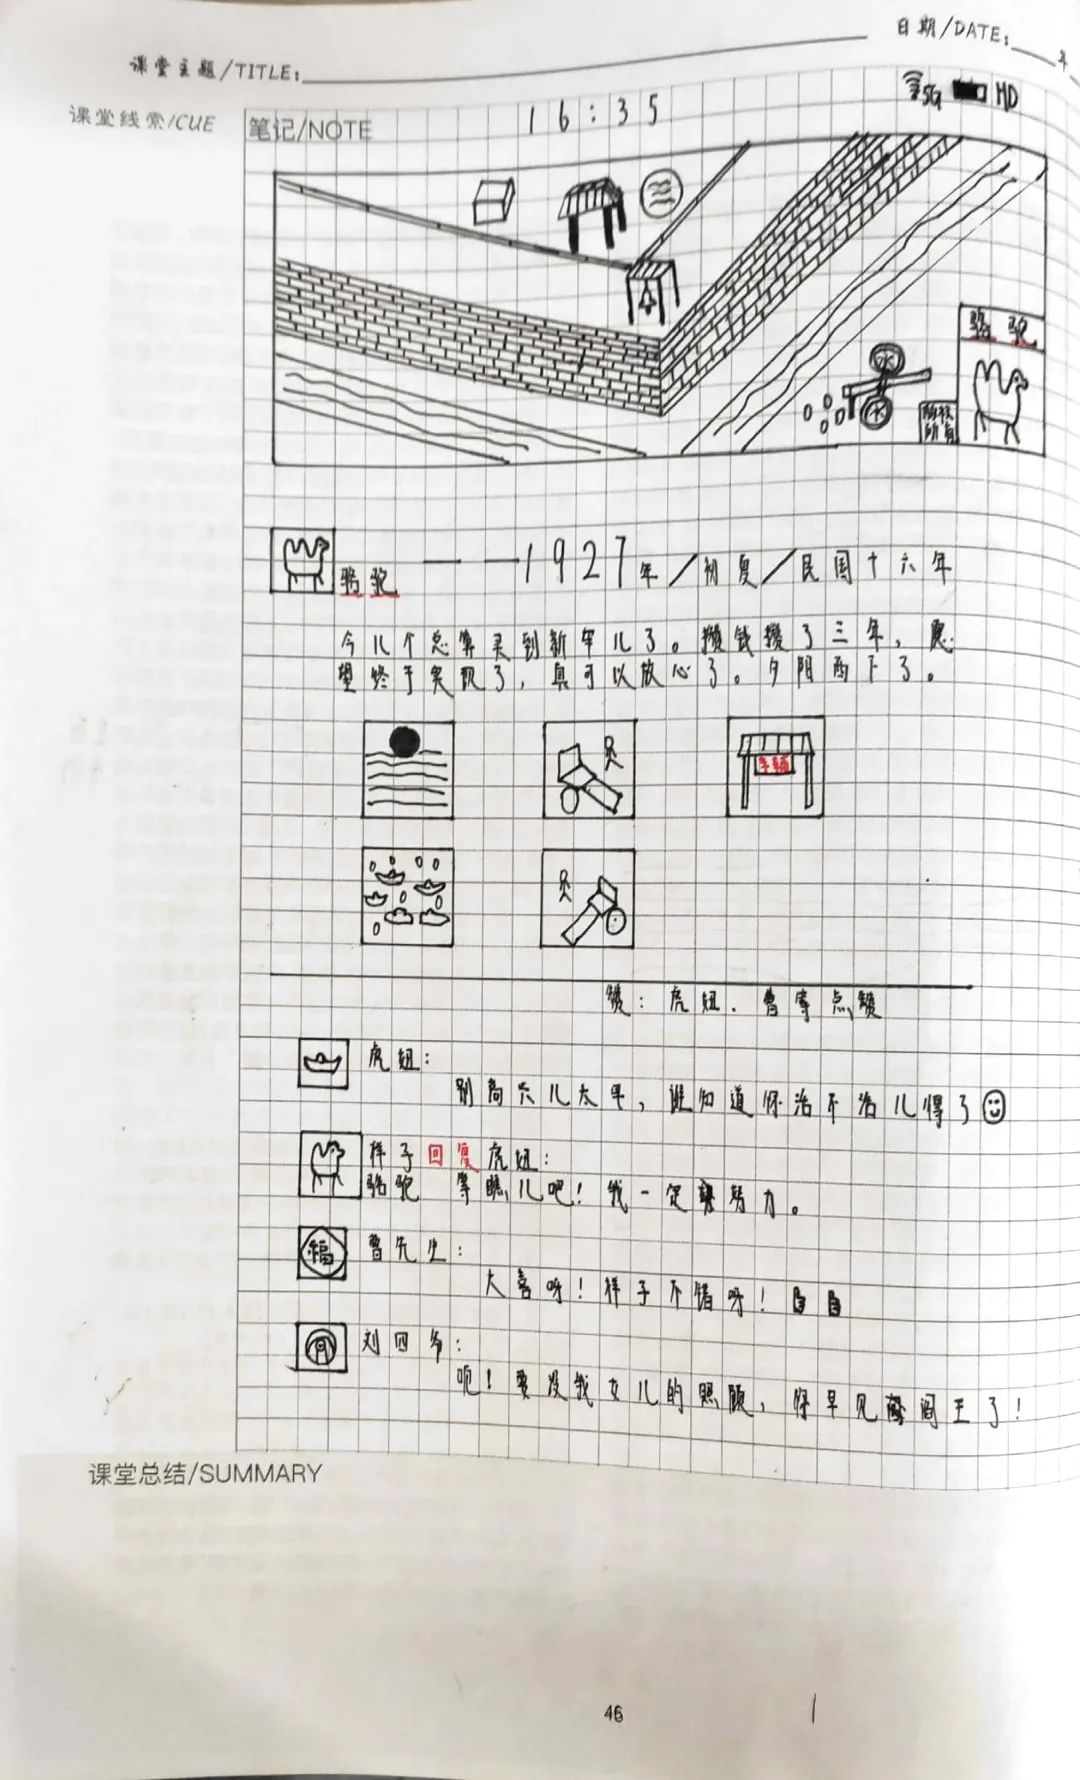 日期/DATE:
课堂主题/TITLE:
课堂线索/CUE
笔记/NOTE
16:35
5G HD
骆驼
骆驼——1927年/初夏/民国十六年
今儿个总算买到新车儿了。攒钱攒了三年，愿
望终于实现了，真可以放心了。夕阳西下了。
车辅
赞：虎妞.曹等点赞
虎妞：
别高兴儿太早，谁知道你治不治儿得了
祥子回复虎妞：
骆驼 等瞧儿吧！我一定 努力。
福
曹先生：
大喜呀！祥子不错呀！
刘四爷：
呃！要没我女儿的照顾，你早见 阎王了！
课堂总结/SUMMARY
46